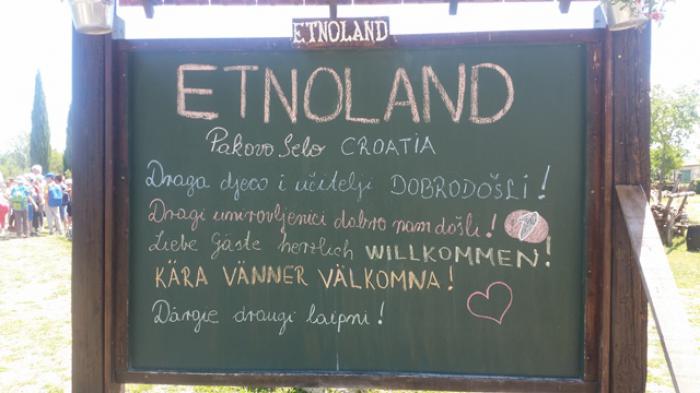 ETNOLAND
ETNOLAND
Pakovo Selo CROATIA
Draga djeco i učitelji DOBRODOŠLI!
Dragi umirovljenici dobro nam došli!
Liebe Gäste herzlich WILLKOMMEN!
KÄRA VÄNNER VÄLKOMNA!
Dārgie draugi laipni!